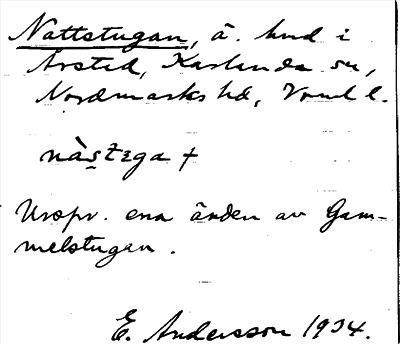 Nattstugan, å. hmd i
Årstad, Karlanda sn,
Nordmarks hd, Vrml l.
nàstega +
Urspr. ena änden av Gam-
melstugan.
E. Andersson 1934.